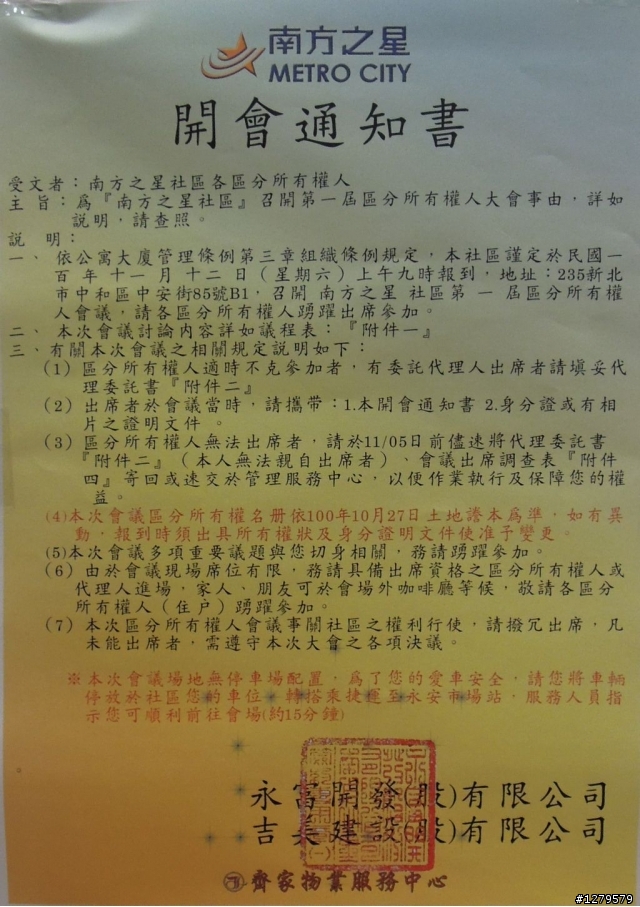 南方之星
METRO CITY
開會通知書
受文者：南方之星社區各區分所有權人
主 旨：為『南方之星社區』召開第一屆區分所有權人大會事由，詳如
說明，請查照。
說 明：
一、 依公寓大廈管理條例第三章組織條例規定，本社區謹定於民國一
百 年 十一 月 十二 日（星期六）上午九時報到，地址：235新北
市中和區中安街85號B1，召開 南方之星 社區第 一 屆區分所有權
人會議，請各區分所有權人踴躍出席參加。
二、 本次會議討論內容詳如議程表：『附件一』
三、有關本次會議之相關規定說明如下：
(1) 區分所有權人適時不克參加者，有委託代理人出席者請填妥代
理委託書『附件二』
(2) 出席者於會議當時，請攜帶：1.本開會通知書 2.身分證或有相
片之證明文件 。
(3) 區分所有權人無法出席者，請於11/05日前儘速將代理委託書
『附件二』（本人無法親自出席者）、會議出席調查表『附件
四』寄回或速交於管理服務中心，以便作業執行及保障您的權
益。
(4)本次會議區分所有權名册依100年10月27日土地謄本為準，如有異
動，報到時須出具所有權狀及身分證明文件使准予變更。
(5)本次會議多項重要議題與您切身相關，務請踴躍參加。
(6) 由於會議現場席位有限，務請具備出席資格之區分所有權人或
代理人進場，家人、朋友可於會場外咖啡廳等候，敬請各區分
所有權人（住戶）踴躍參加。
(7) 本次區分所有權人會議事關社區之權利行使，請撥冗出席，凡
未能出席者，需遵守本次大會之各項決議。
※本次會議場地無停車場配置，為了您的愛車安全，請您將車輛
停放於社區您的車位，轉搭乘捷運至永安市場站，服務人員指
示您可順利前往會場(約15分鐘)
永富開發(股)有限公司
吉美建設(股)有限公司
齊家物業服務中心
#1279579